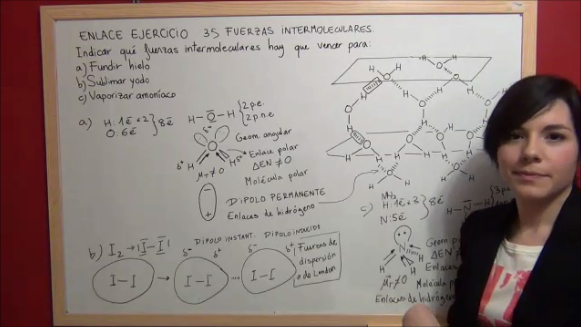 ENLACE EJERCICIO 35 FUERZAS INTERMOLECULARES.
Indicar qué fuerzas intermoleculares hay que vencer para:
a) Fundir hielo
b) Sublimar yodo
c) Vaporizar amoníaco
a) H: 1ē × 2
O: 6ē } 8ē
H - O - H { 2 p.e.
2 p.n.e.
Geom. angular
Enlace polar
ΔEN ≠ 0
Molécula polar
μr ≠ 0
DIPOLO PERMANENTE
Enlaces de hidrógeno
b) I2 → I - I
DIPOLO INSTANT. DIPOLO INDUCIDO
δ- δ+ δ- δ+
I - I → I - I ... I - I
Fuerzas de
dispersión
o de London
c) NH3
H: 1ē × 3
N: 5ē } 8ē
H - N - H
Geom.
ΔEN ≠ 0
Enlaces
μr ≠ 0
Molécula
Enlaces de hidróg